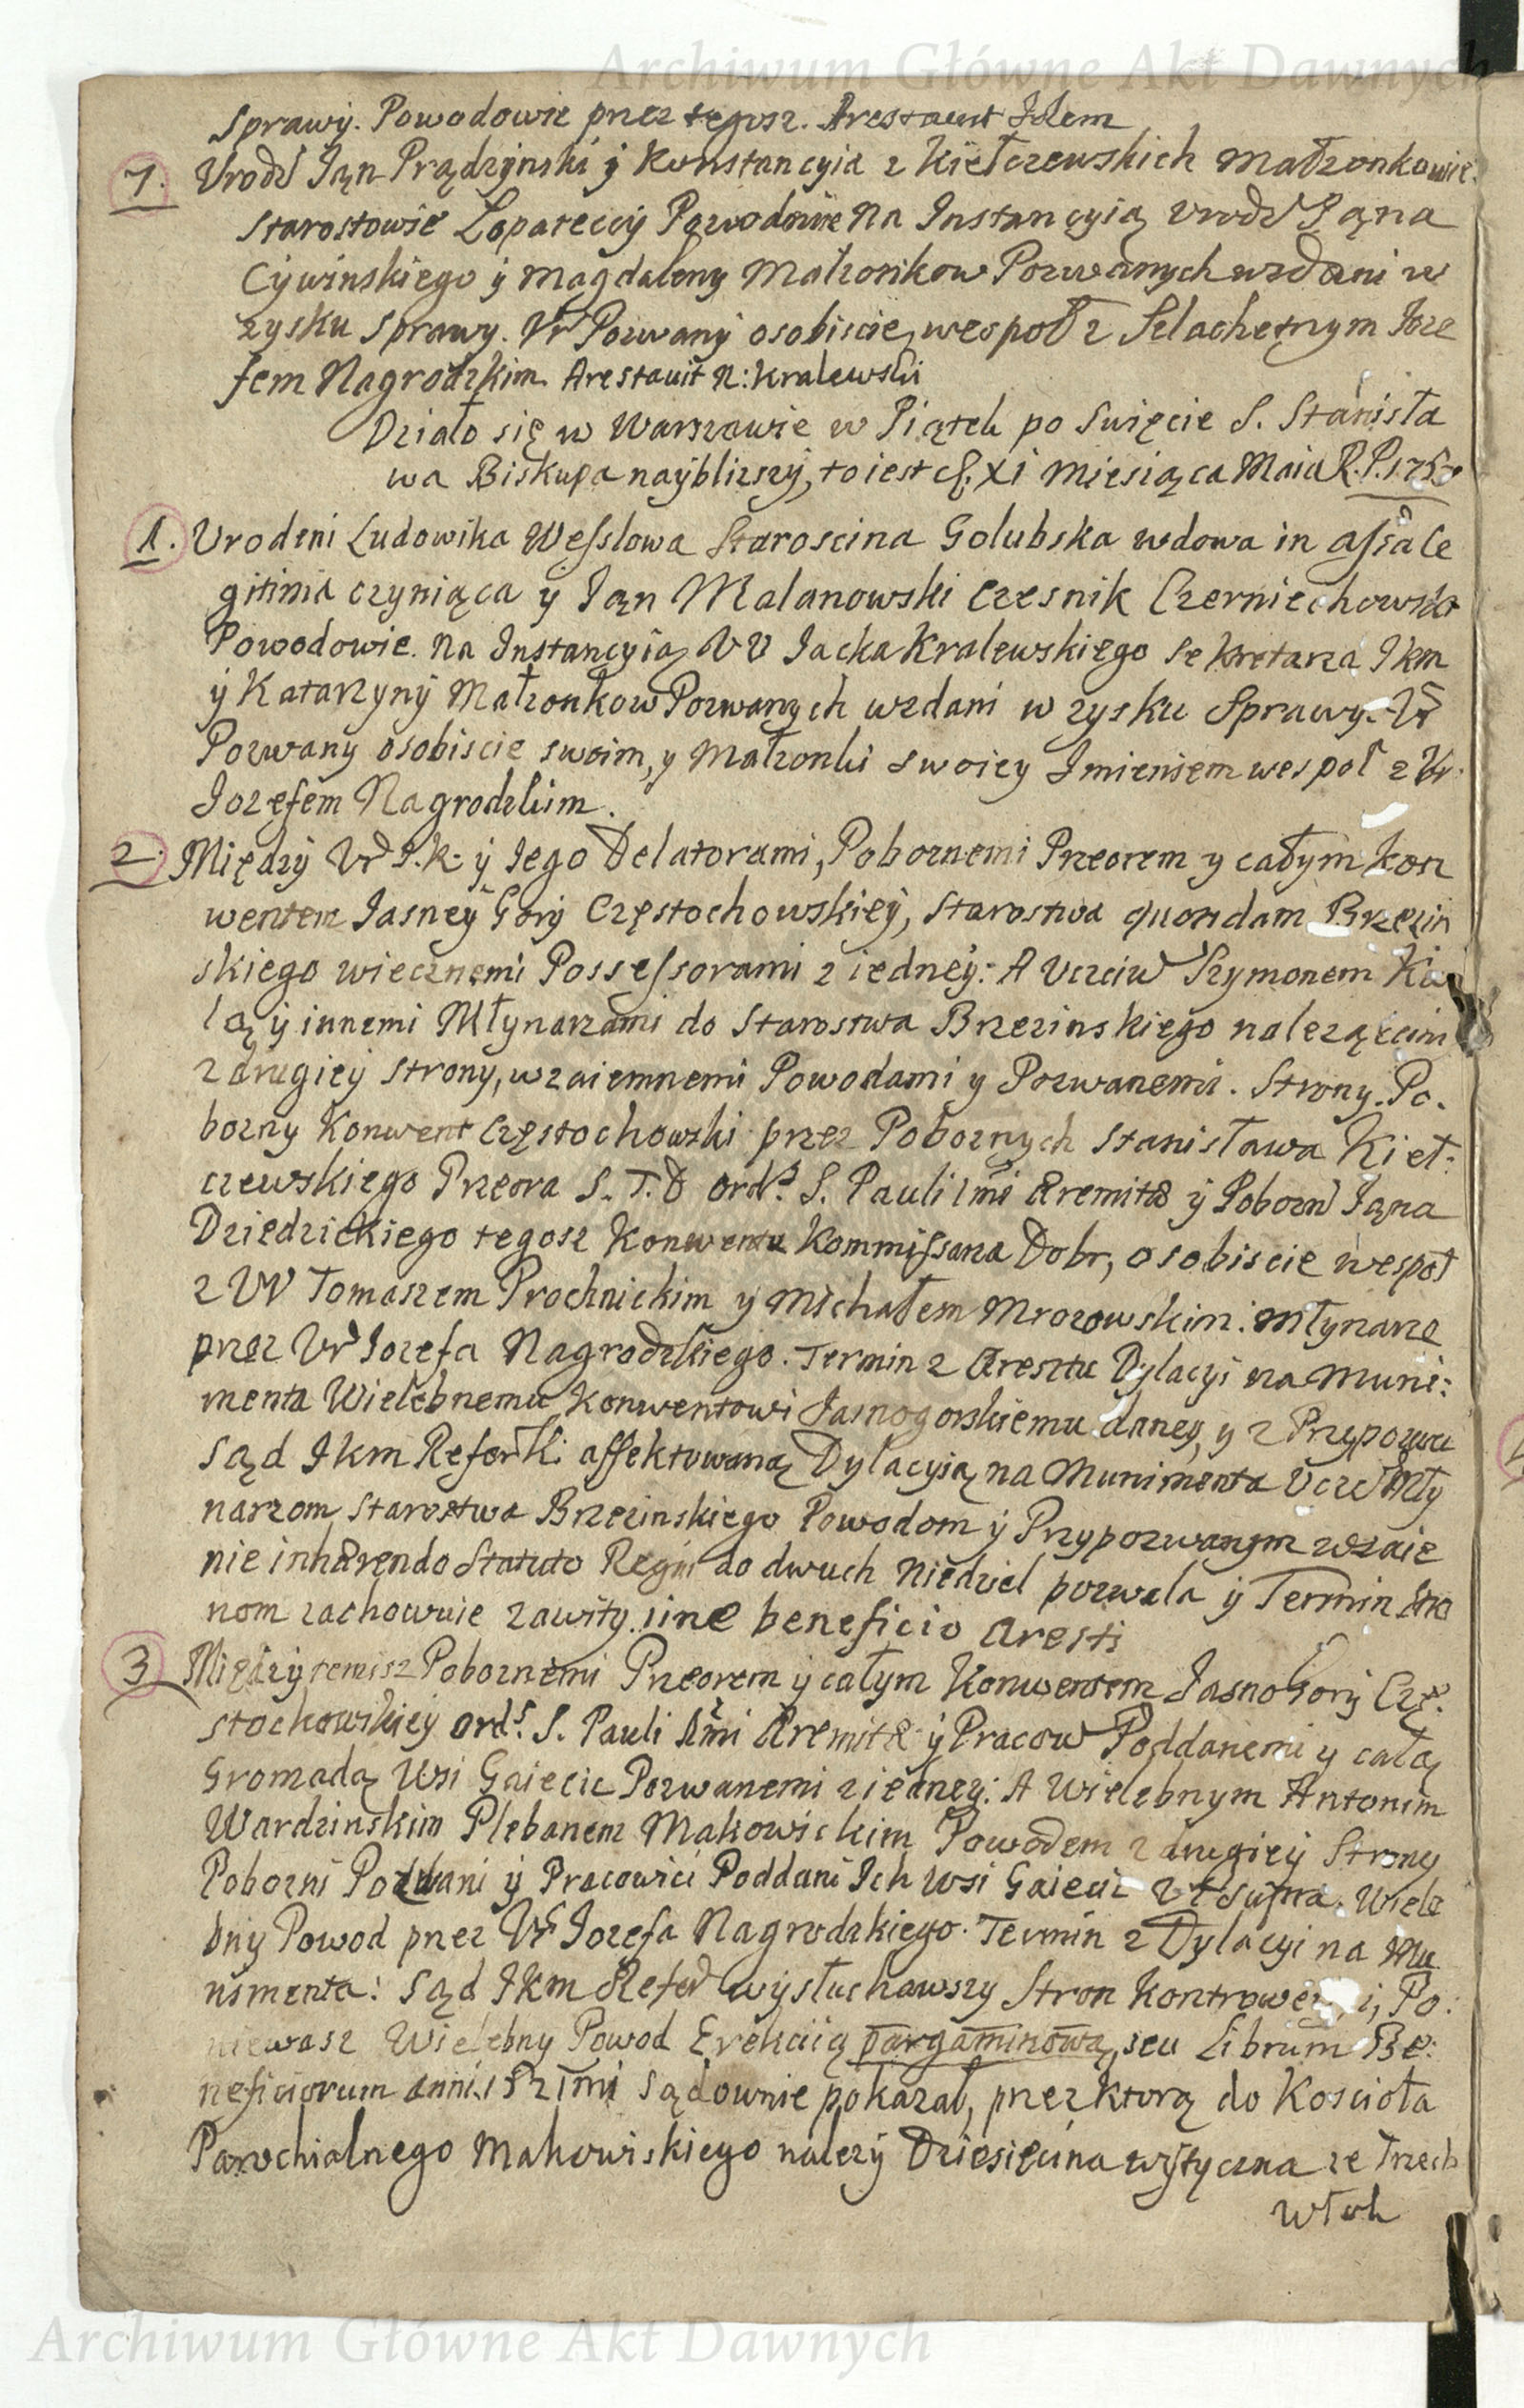 Archiwum Główne Akt Dawnych
Sprawy. Powodowie przez tegosz. Arestavit Idem
7. Urodz Ian Prądzynski y Konstancyia z Kiełczewskich Małzonkowie
Starostowie Łopateccy Powodowie Na Instancyią Urodz Iąna
Cywinskiego y Magdaleny Małzonkow Pozwanych wzdani w
zysku sprawy. Ur Pozwany osobiscie, wespoł z Szlachetnym Ioze
fem Nagrodzkim. Arestavit N: Kralewski
Działo się w Warszawie w Piątek po Swięcie S. Stanisła
wa Biskupa nayblizszy, to iest d. XI Miesiąca Maia R.P.
1. Urodzeni Ludowika Wesslowa Staroscina Golubska wdowa in assa le
gitima czyniąca y Ian Malanowski Czesnik Czerniechowski
Powodowie. Na Instancyią UU Iacka Kralewskiego Sekretarza Ikm
y Katarzyny Małzonkow Pozwanych wzdani w zysku Sprawy. Ur
Pozwany osobiscie swoim, y Małzonki swoiey Imieniem wespoł z Ur.
Iozefem Nagrodzkim.
2. Między Ur I.K. y Iego Delatorami, Poboznemi Przeorem y całym Kon
wentem Iasney Gory Częstochowskiey, Starostwa quondam Brzezin
skiego wiecznemi Possessorami z iedney: A Uczciw Szymonem
lą y innemi Młynarzami do Starostwa Brzezinskiego nalezącemi
z drugiey strony, wzaiemnemi Powodami y Pozwanemi. Strony. Po.
bozny Konwent Częstochowski przez Poboznych Stanisława Kieł:
czewskiego Przeora S. T. D Ord.s S. Pauli 1mi Eremitæ y Pobozn Iąna
Dziedzickiego tegosz Konwentu Kommissarza Dobr, osobiscie wespoł
z UU Tomaszem Prochnickim y Michałem Mrozowskim: Młynarze
przez Ur Iozefa Nagrodzkiego. Termin z Aresztu Dylacyi na Muni:
menta Wielebnemu Konwentowi Iasnogorskiemu daney, y z Przypozwu
Sąd Ikm Referñ. affektowaną Dylacyią na Munimenta Uczc Mły
narzom Starostwa Brzezinskiego Powodom y Przypozwanym wzaie
nie inhærendo Statuto Regni do dwuch Niedziel pozwala y Termin Stro
nom zachowuie zawity. sine beneficio Aresti
3. Między temisz Poboznemi Przeorem y całym Konwentem Iasno Gory Czę.
stochowskiey Ord.s S. Pauli 1mi Eremitæ y Pracow Poddanemi y całą
Gromadą Wsi Gaiecic Pozwanemi z iedney: A Wielebnym Antonim
Wardzinskim Plebanem Makowickim Powodem z drugiey Strony
Pobozni Pozwani y Pracowici Poddani Ich Wsi Gaiecic Ut supra. Wiele
bny Powod przez Ur Iozefa Nagrodzkiego. Termin z Dylacyi na Mu
nimenta: Sąd Ikm Refer wysłuchawszy Stron Kontrowersyi, Po:
niewasz Wielebny Powod Erekcyią pargaminową, seu Librum Be:
neficiorum anni Sądownie pokazał, przez ktorą do Koscioła
Parochialnego Makowiskiego nalezy Dziesięcina wytyczna ze Trzech
włok
Archiwum Główne Akt Dawnych